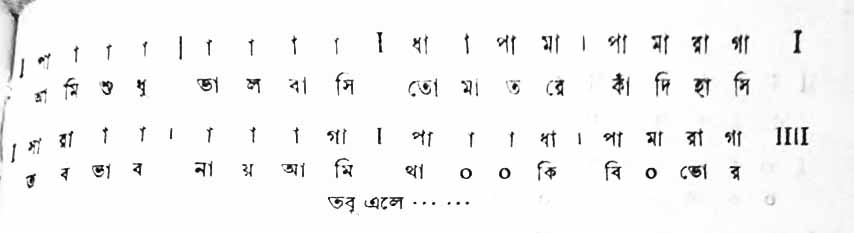 | পা া া া | া া া া I ধা া পা মা । পা মা রা গা I
আ মি শু ধু ভা ল বা সি তো মা ত রে কাঁ দি হা সি
| সা রা া া । া া া গা I পা া া ধা । পা মা রা গা IIII
ত ব ভা ব না য় আ মি থা ০ ০ কি বি ০ ভো র
তবু এলে ... ...